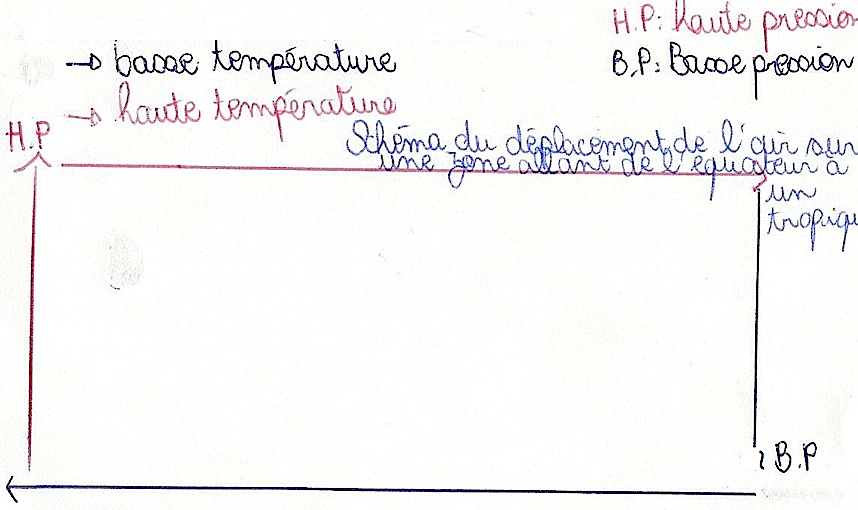 H.P: Haute pression
→ basse température
B.P: Basse pression
→ haute température
H.P
Schéma du déplacement de l'air sur
une zone allant de l'équateur à
un
tropique
B.P